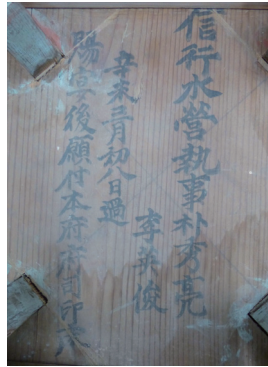 信行水營執事朴秀亮
李英俊
辛未三月初八日過
陽寧後願付本府府司印